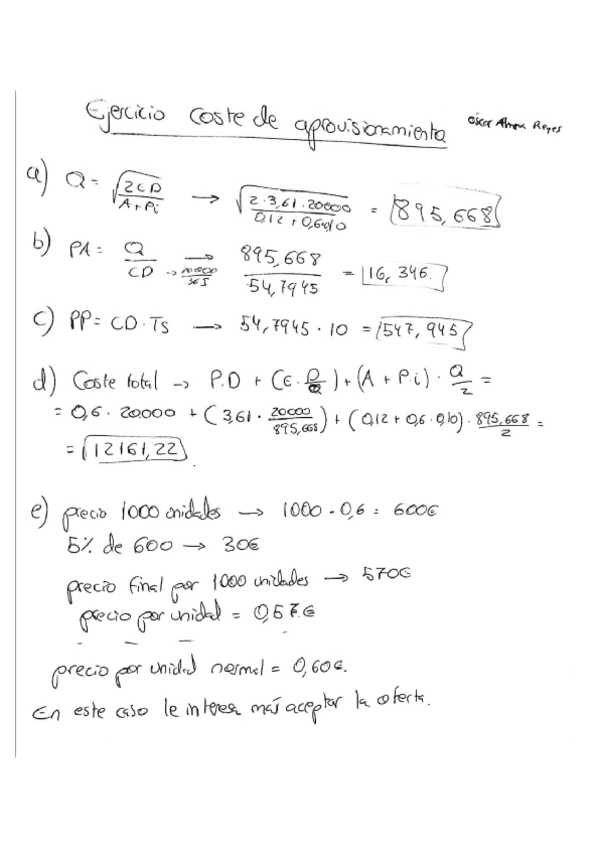 Ejercicio coste de aprovisionamiento
Reyes
a) Q = √(2CD / A+Pi) → √(2·3,61·20000 / 0,12+0,6·0,10) = 895,668
b) PA = Q / CD → 20000/365 → 895,668 / 54,7945 = 16,346.
c) PP = CD·Ts → 54,7945·10 = 547,945
d) Coste total → P.D + (E·D/Q) + (A + P·i)·Q/2 =
= 0,6·20000 + (3,61·20000/895,668) + (0,12 + 0,6·0,10)·895,668/2 =
= 12161,22
e) precio 1000 unidades → 1000·0,6 = 600€
5% de 600 → 30€
precio final por 1000 unidades → 570€
precio por unidad = 0,57€
precio por unidad normal = 0,60€.
En este caso le interesa más aceptar la oferta.